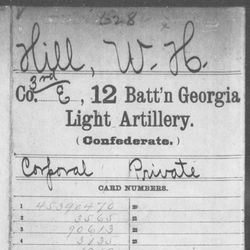 628
Hill, W. H.
3rd
Co. E, 12 Batt'n Georgia
Light Artillery.
(Confederate.)
Corporal Private
CARD NUMBERS.
1 45390470 20
2 3565 21
3 90613 22
4 3735 23